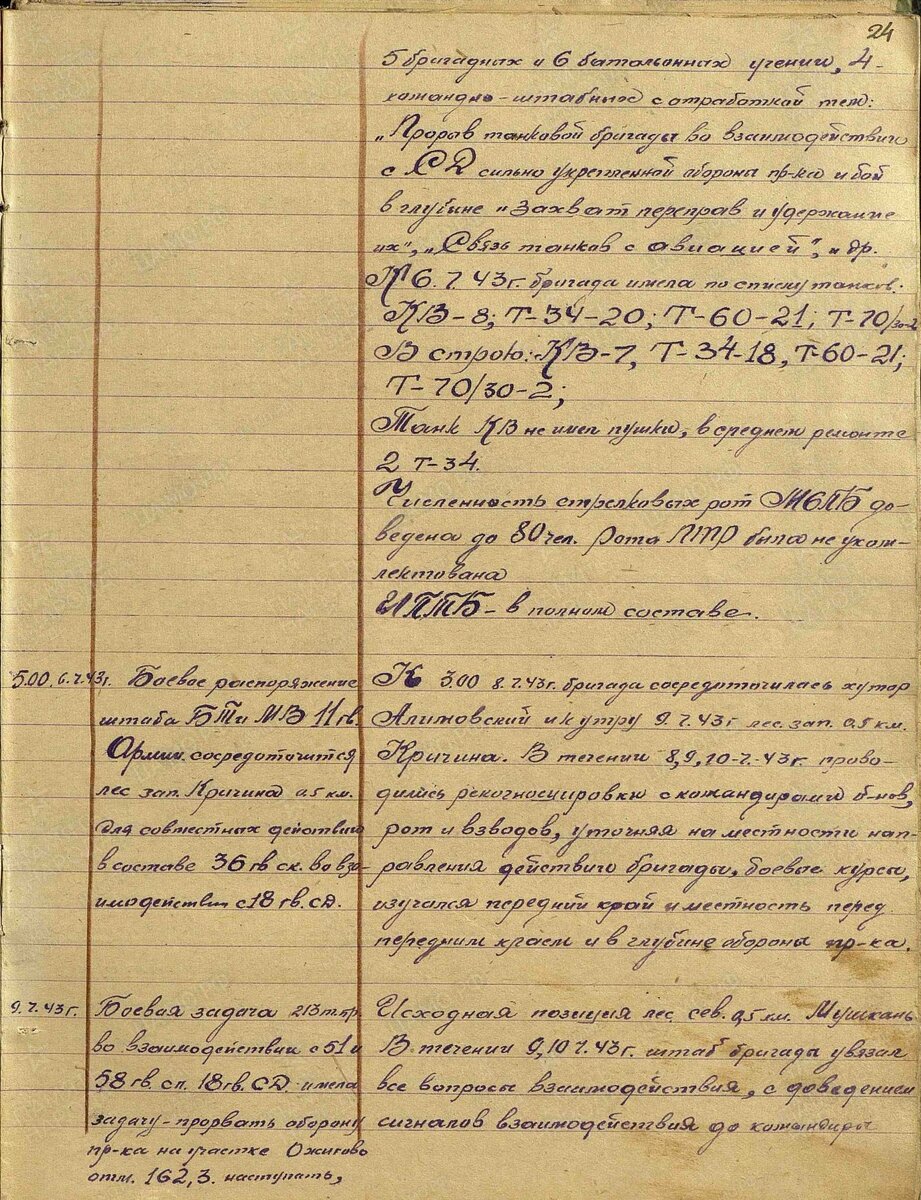 24
5 бригадных и 6 батальонных учений, 4-
командно-штабных с отработкой тем:
„Прорыв танковой бригады во взаимодействии
с СД сильно укрепленной обороны пр-ка и бой
в глубине „Захват переправ и удержание
их", „Связь танков с авиацией", и др.
К 6.7.43г. бригада имела по списку танков:
КВ-8; Т-34-20; Т-60-21; Т-70/30-2
В строю: КВ-7, Т-34-18, Т-60-21;
Т-70/30-2;
Танк КВ не имел пушки, в среднем ремонте
2 Т-34.
Численность стрелковых рот МСПБ до-
ведена до 80 чел. Рота ПТР была не уком-
лектована
ИПТБ - в полном составе.
5.00. 6.7.43г.
Боевое распоряжение
штаба БТ и МВ 11 гв.
Армии сосредоточится
лес зап. Кричина 0,5 км.
для совместных действий
в составе 36 гв ск. во вза-
имодействии с 18 гв. СД.
К 3.00 8.7.43г. бригада сосредоточилась хутор
Алимовский и к утру 9.7.43г лес. зап. 0,5 км.
Кричина. В течении 8,9,10-7-43г. прово-
дились рекогносцировки с командирами б-нов,
рот и взводов, уточняя на местности нап-
равления действий бригады, боевые курсы,
изучался передний край и местность перед
передним краем и в глубине обороны пр-ка.
9.7.43г.
Боевая задача 213 т.бр.
во взаимодействии с 51 и
58 гв. сп. 18 гв. СД имела
задачу - прорвать оборону
пр-ка на участке Ожигово
отм. 162,3. наступать,
Исходная позиция лес сев. 0,5 км. Мушкань
В течении 9,10 7.43г. штаб бригады увязал
все вопросы взаимодействия, с доведением
сигналов взаимодействия до командира